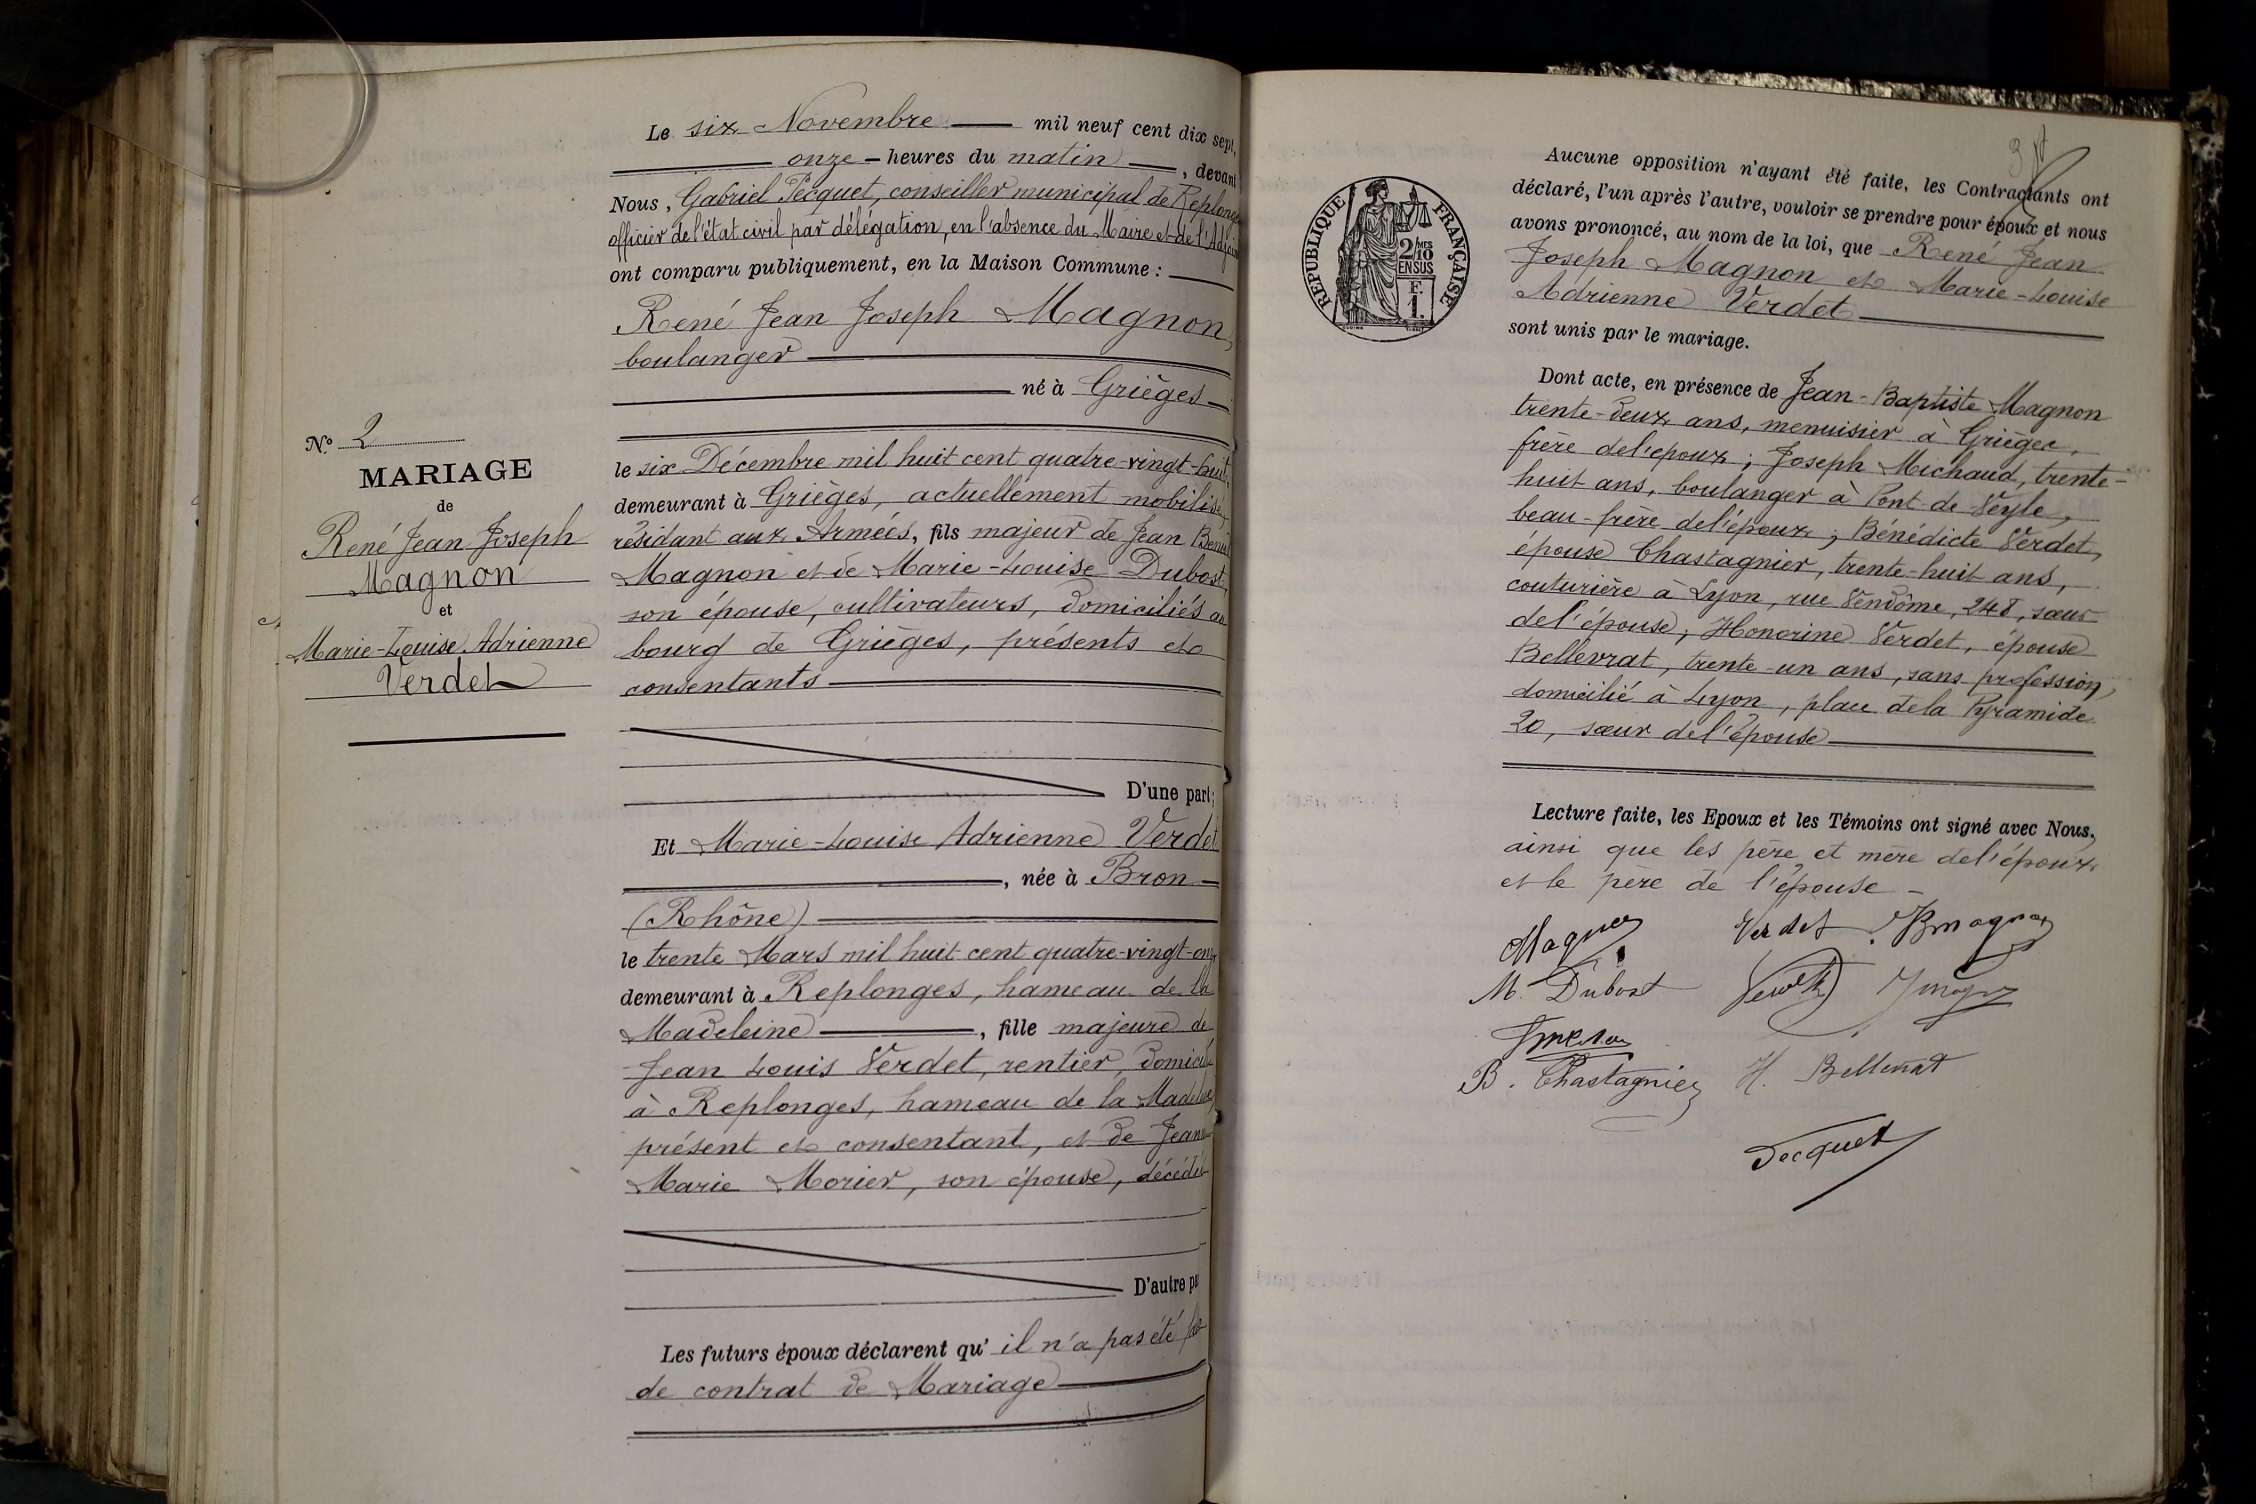 Le six Novembre mil neuf cent dix sept,
onze - heures du matin, devant
Nous, Gabriel Pecquet, conseiller municipal de Replonges
officier de l'état civil par délégation, en l'absence du Maire et de l'Adjoint
ont comparu publiquement, en la Maison Commune :
René Jean Joseph Magnon,
boulanger
né à Grièges
le six Décembre mil huit cent quatre-vingt-huit,
demeurant à Grièges, actuellement mobilisé,
résidant aux Armées, fils majeur de Jean Benoit
Magnon et de Marie-Louise Dubost,
son épouse, cultivateurs, domiciliés au
bourg de Grièges, présents et
consentants
D'une part;
Et Marie-Louise Adrienne Verdet
, née à Bron
(Rhône)
le trente Mars mil huit cent quatre-vingt-onze
demeurant à Replonges, hameau de la
Madeleine, fille majeure de
Jean Louis Verdet, rentier, domicilié
à Replonges, hameau de la Madeleine,
présent et consentant, et de Jeanne
Marie Morier, son épouse, décédée
D'autre pa
Les futurs époux déclarent qu' il n'a pas été fait
de contrat de Mariage
N° 2
MARIAGE
de
René Jean Joseph
Magnon
et
Marie-Louise Adrienne
Verdet
RÉPUBLIQUE FRANÇAISE
2/MES
10
EN SUS
F.
1.
Aucune opposition n'ayant été faite, les Contractants ont
déclaré, l'un après l'autre, vouloir se prendre pour époux et nous
avons prononcé, au nom de la loi, que René Jean
Joseph Magnon et Marie-Louise
Adrienne Verdet
sont unis par le mariage.
Dont acte, en présence de Jean-Baptiste Magnon
trente-deux ans, menuisier à Grièges,
frère de l'époux; Joseph Michaud, trente-
huit ans, boulanger à Pont-de-Veyle,
beau-frère de l'époux; Bénédicte Verdet,
épouse Chastagnier, trente-huit ans,
couturière à Lyon, rue Vendôme, 248, sœur
de l'épouse; Honorine Verdet, épouse
Bellevrat, trente-un ans, sans profession,
domicilié à Lyon, place de la Pyramide
20, sœur de l'épouse
Lecture faite, les Epoux et les Témoins ont signé avec Nous,
ainsi que les père et mère de l'époux
et le père de l'épouse -
Magnon Verdet JB magnon
M. Dubost Verdet
B. Chastagnier H. Bellevrat
Pecquet